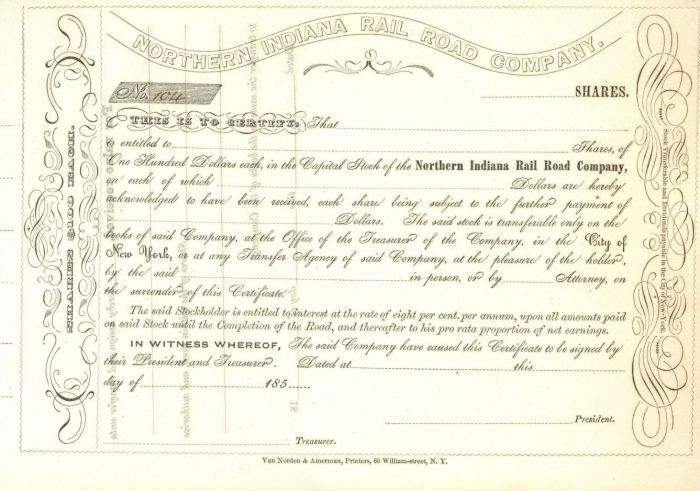 NORTHERN INDIANA RAIL ROAD COMPANY.
No. 104
SHARES.
THIS IS TO CERTIFY, That
is entitled to Shares, of
One Hundred Dollars each, in the Capital Stock of the Northern Indiana Rail Road Company,
on each of which Dollars are hereby
acknowledged to have been received, each share being subject to the further payment of
Dollars. The said stock is transferable only on the
books of said Company, at the Office of the Treasurer of the Company, in the City of
New York, or at any Transfer Agency of said Company, at the pleasure of the holder,
by the said in person, or by Attorney, on
the surrender of this Certificate.
The said Stockholder is entitled to interest at the rate of eight per cent. per annum, upon all amounts paid
on said Stock until the Completion of the Road, and thereafter to his pro rata proportion of net earnings.
IN WITNESS WHEREOF, The said Company have caused this Certificate to be signed by
their President and Treasurer. Dated at this
day of 185
President.
Treasurer.
Van Norden & Amerman, Printers, 60 William-street, N. Y.
SHARES $100 EACH.
Stock Transferable and Dividends payable in the City of New York.